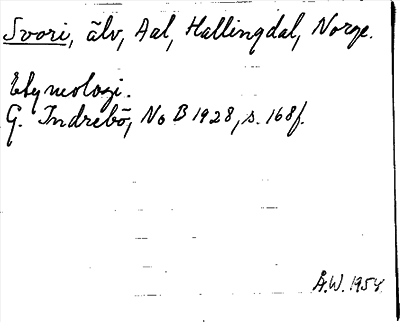 Svori, älv, Aal, Hallingdal, Norge.
Etymologi.
G. Indrebö, NoB 1928, s. 168f.
Å.W. 1954